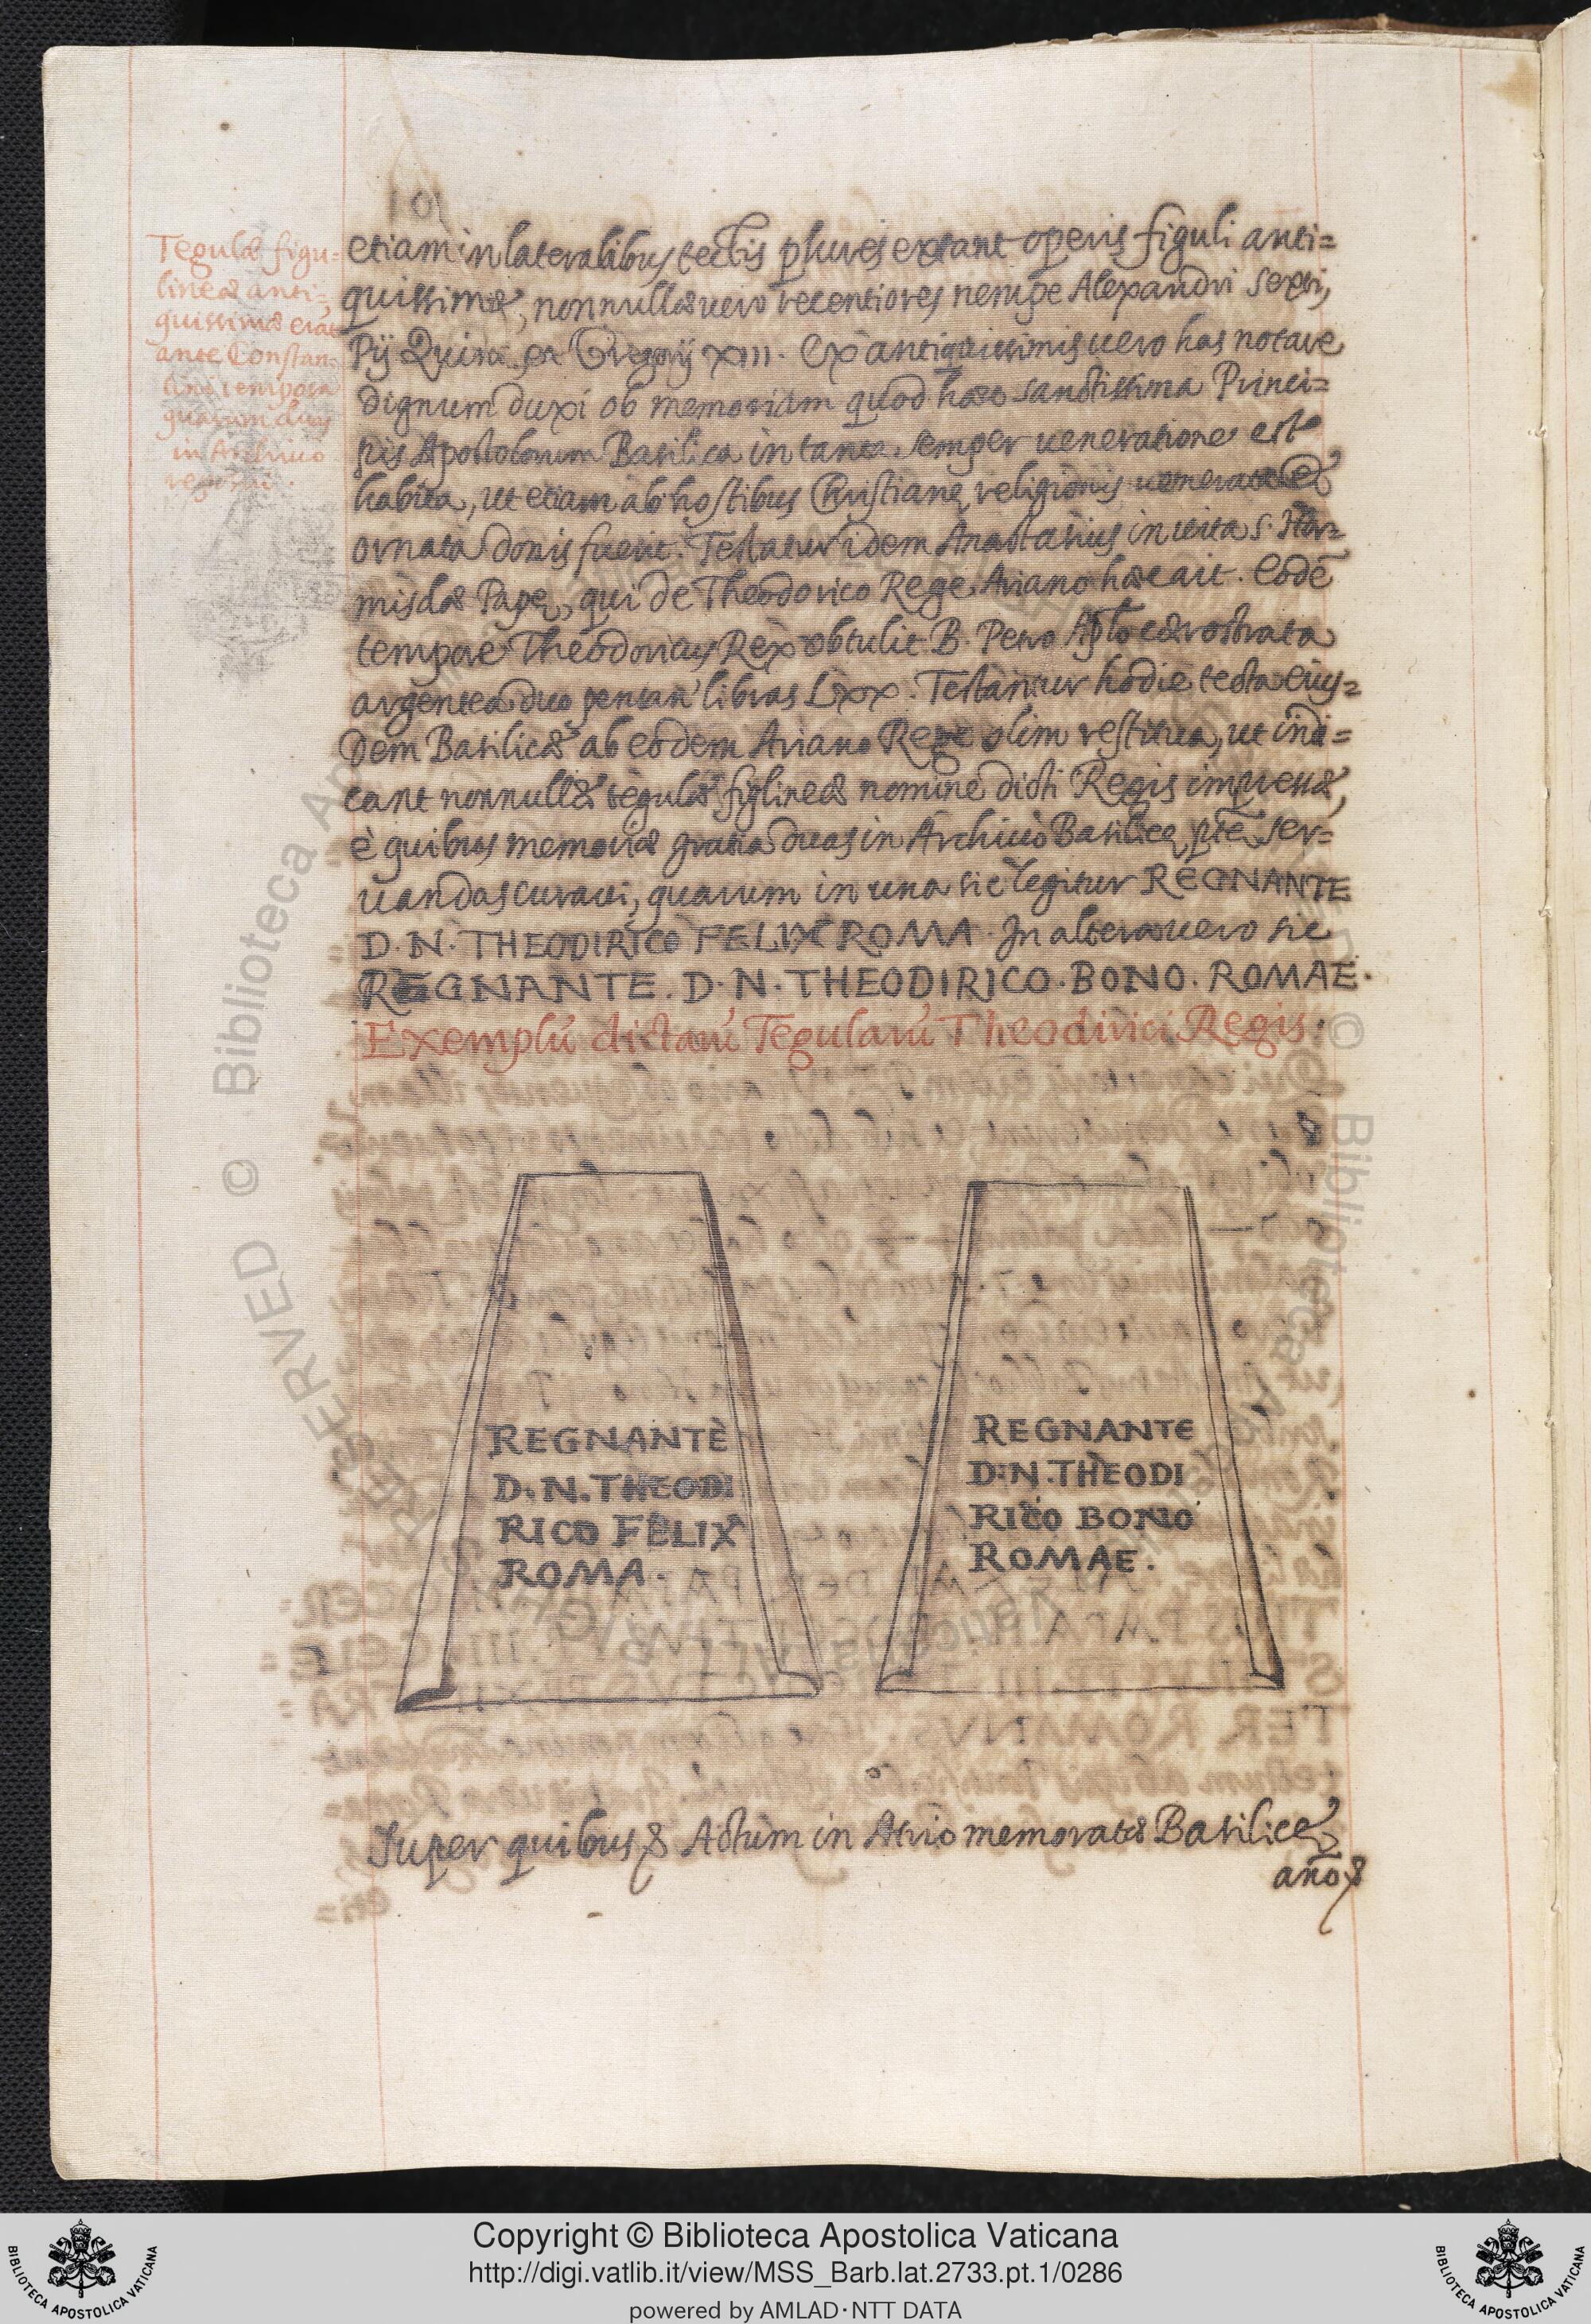 Tegulæ figu=
lineæ anti=
quissimæ erāt
ante Constan=
tempora
quarum duas
in Archivo
etiam in lateralibus tectis plures extant operis figuli anti=
quissimæ, nonnullæ uero recentiores nempe Alexandri Sexti,
Pij Quinti et Gregorij XIII. Ex antiquissimis uero has notare
dignum duxi ob memoriam quod hæc sanctissima Princi=
pis Apostolorum Basilica in tanta semper ueneratione est
habita, ut etiam ab hostibus Christianę religionis uenerata et
ornata donis fuerit. Testatur idem Anastasius in uita S. Hor=
misdæ Papę, qui de Theodorico Rege Ariano hæc ait. Eodē
tempore Theodoricus Rex obtulit B. Petro Aplo cærostrata
argentea duo pensan' libras Lxx. Testantur hodie tecta eius=
dem Basilicæ ab eodem Ariano Rege olim restituta, ut indi=
cant nonnullæ tegulæ figlineæ nomine dicti Regis impressæ,
è quibus memoriæ gratia duas in Archiuo Basilicę ptę ser=
uandas curaui, quarum in una sic legitur REGNANTE
D. N. THEODIRICO FELIX ROMA. In altera uero sic
REGNANTE. D. N. THEODIRICO. BONO. ROMAE.
Exemplū dictarū Tegularū Theodirici Regis.
REGNANTE
D. N. THEODI
RICO FELIX
ROMA.
REGNANTE
D. N. THEODI
RICO BONO
ROMAE.
Super quibus & Actum in Atrio memoratæ Basilicę
año &
Copyright © Biblioteca Apostolica Vaticana
http://digi.vatlib.it/view/MSS_Barb.lat.2733.pt.1/0286
powered by AMLAD·NTT DATA
BIBLIOTECA APOSTOLICA VATICANA
BIBLIOTECA APOSTOLICA VATICANA